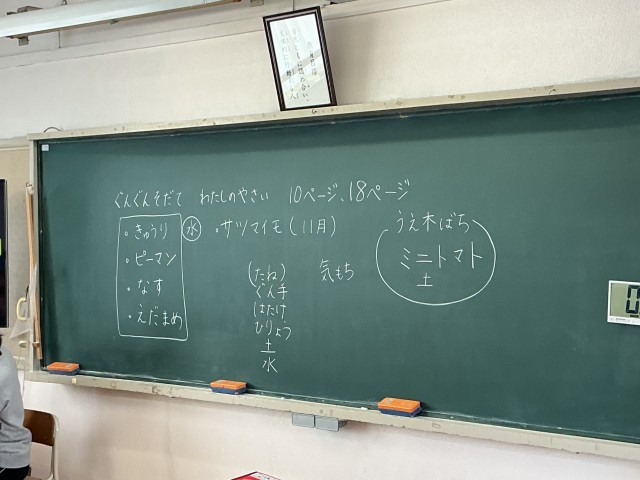 ぐんぐんそだて わたしのやさい 10ページ、18ページ
・きゅうり
・ピーマン
・なす
・えだまめ
水
・サツマイモ(11月)
(たね)
ぐん手
はたけ
ひりょう
土
水
気もち
うえ木ばち
ミニトマト
土